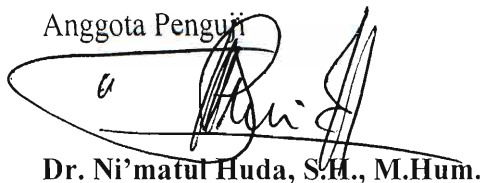 Anggota Penguji
Dr. Ni'matul Huda, S.H., M.Hum.